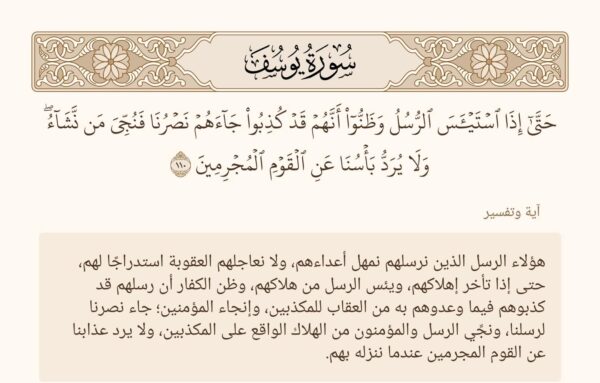 سُورَةُ يُوسُفَ
حَتَّىٰٓ إِذَا ٱسۡتَيۡـَٔسَ ٱلرُّسُلُ وَظَنُّوٓاْ أَنَّهُمۡ قَدۡ كُذِبُواْ جَآءَهُمۡ نَصۡرُنَا فَنُجِّيَ مَن نَّشَآءُۖ
وَلَا يُرَدُّ بَأۡسُنَا عَنِ ٱلۡقَوۡمِ ٱلۡمُجۡرِمِينَ ١١٠
آية وتفسير
هؤلاء الرسل الذين نرسلهم نمهل أعداءهم، ولا نعاجلهم العقوبة استدراجًا لهم،
حتى إذا تأخر إهلاكهم، ويئس الرسل من هلاكهم، وظن الكفار أن رسلهم قد
كذبوهم فيما وعدوهم به من العقاب للمكذبين، وإنجاء المؤمنين؛ جاء نصرنا
لرسلنا، ونجّي الرسل والمؤمنون من الهلاك الواقع على المكذبين، ولا يرد عذابنا
عن القوم المجرمين عندما ننزله بهم.